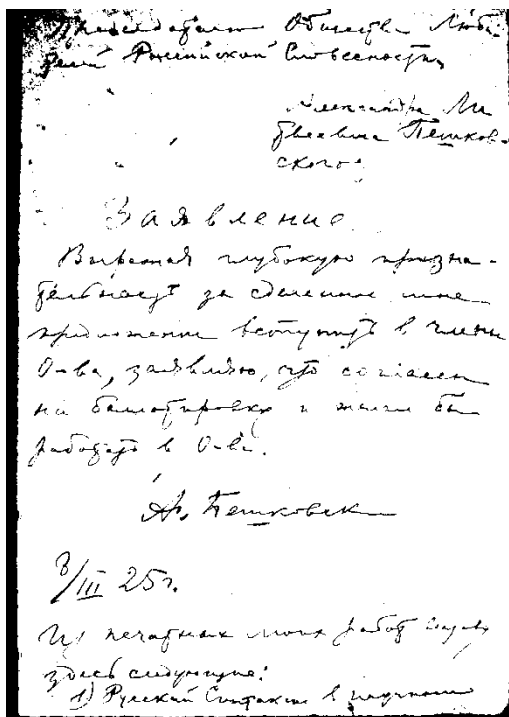 Председателю Общества Люби-
телей Российской Словесности
Александра Ма
твеевича Пешков-
ского
Заявление
Выражая глубокую призна-
тельность за сделанное мне
предложение вступить в члены
О-ва, заявляю, что согласен
на баллотировку и желал бы
работать в О-ве.
Ал. Пешковск
8/III 25 г.
Из печатных моих работ
здесь следующие:
1) Русский Синтаксис в научном